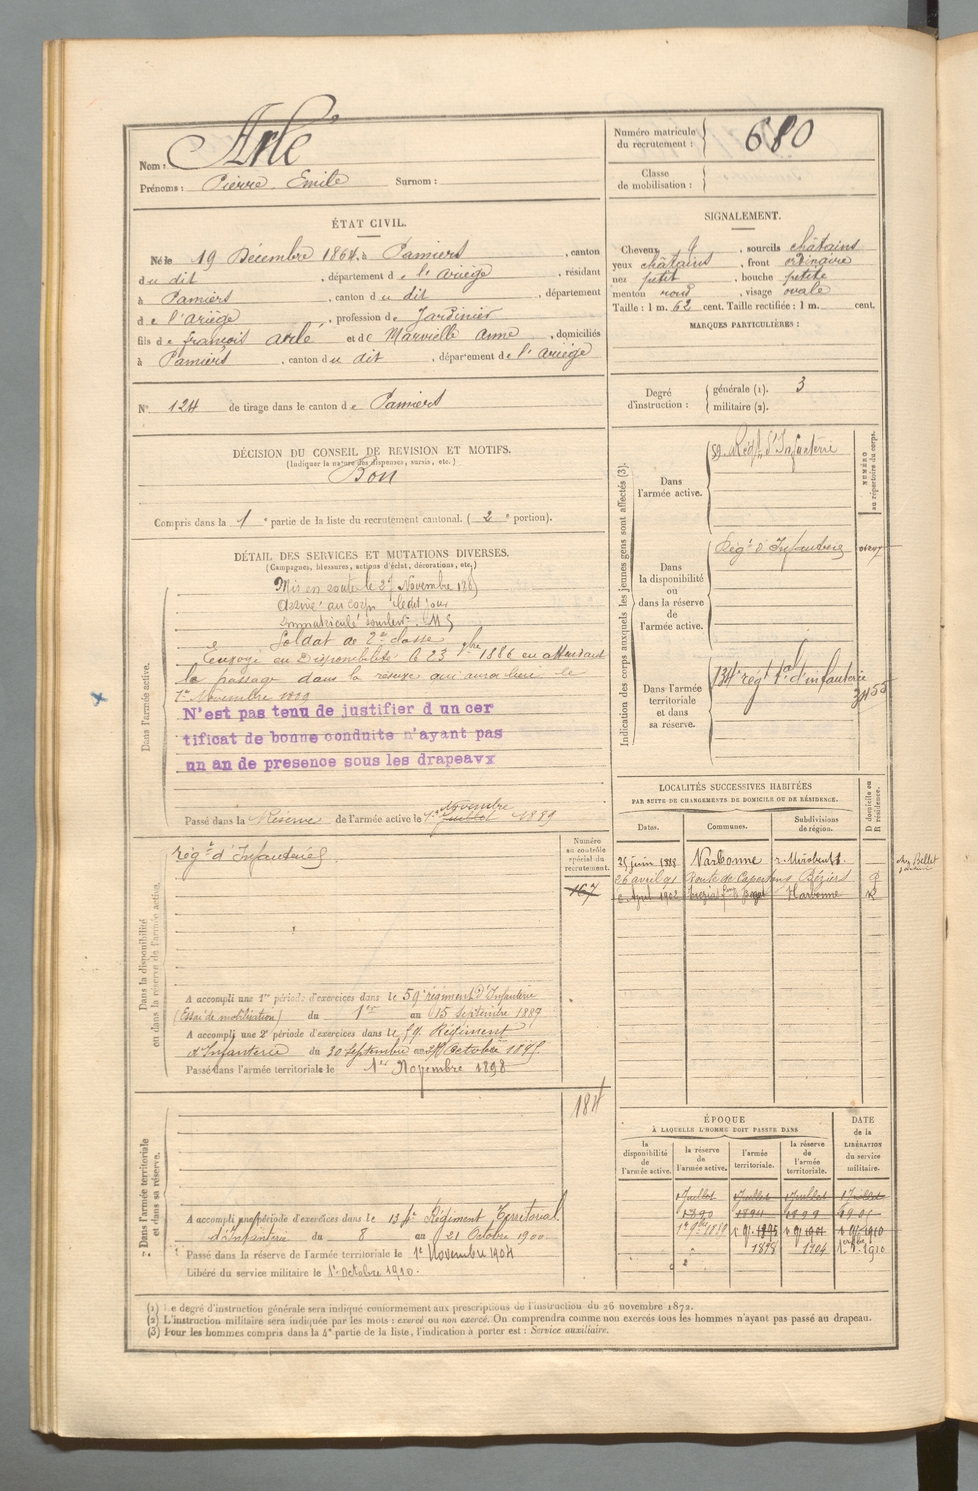 Nom : Arlé
Prénoms : Pierre Emile Surnom :
Numéro matricule du recrutement : 680
Classe de mobilisation :
ÉTAT CIVIL.
Né le 19 Décembre 1864, à Pamiers, canton
du dit, département de l'ariège, résidant
à Pamiers, canton du dit, département
de l'ariège, profession de Jardinier
fils de françois arlé et de Marvielle Anne, domiciliés
à Pamiers, canton du dit, département de l'ariège
SIGNALEMENT.
Cheveux, sourcils châtains
yeux châtains, front ordinaire
nez petit, bouche petite
menton rond, visage ovale
Taille : 1 m. 62 cent. Taille rectifiée : 1 m. cent.
MARQUES PARTICULIÈRES :
N° 124 de tirage dans le canton de Pamiers
Degré d'instruction : générale (1). 3
militaire (2).
DÉCISION DU CONSEIL DE REVISION ET MOTIFS.
(Indiquer la nature des dispenses, sursis, etc.)
Bon
Compris dans la 1e partie de la liste du recrutement cantonal. ( 2e portion).
DÉTAIL DES SERVICES ET MUTATIONS DIVERSES.
(Campagnes, blessures, actions d'éclat, décorations, etc.)
Dans l'armée active.
Mis en route le Novembre
arrivé au corps ledit jour
immatriculé sous le n°
Soldat de 2e classe
Envoyé en Disponibilité le 23 7bre 1886 en attendant
le passage dans la réserve qui aura lieu le
1er Novembre
N'est pas tenu de justifier d un cer
tificat de bonne conduite n'ayant pas
un an de presence sous les drapeaux
Novembre
Passé dans la Réserve de l'armée active le 1er Juillet 1889
Indication des corps auxquels les jeunes gens sont affectés (3).
NUMÉRO au répertoire du corps.
Dans l'armée active.
59 Régt d'Infanterie
Dans la disponibilité ou dans la réserve de l'armée active.
Régt d'Infanterie
Dans l'armée territoriale et dans sa réserve.
134e régt tal d'infanterie
LOCALITÉS SUCCESSIVES HABITÉES
PAR SUITE DE CHANGEMENTS DE DOMICILE OU DE RÉSIDENCE.
D domicile ou R résidence.
Dates. Communes. Subdivisions de région.
25 juin 1888 Narbonne r. Mirabeau
26 avril 91 Route de Béziers
2 April 1902 Narbonne R
chez Bellet
Dans la disponibilité ou dans la réserve de l'armée active.
régt d'Infanterie
Numéro au contrôle spécial du recrutement.
167
A accompli une 1re période d'exercices dans le 59e régiment d'Infanterie
(Essai de mobilisation) du 1er au 15 Septembre 1887
A accompli une 2e période d'exercices dans le 59 Régiment
d'Infanterie du 30 Septembre au 27 Octobre
Passé dans l'armée territoriale le 1er Novembre 1898
Dans l'armée territoriale et dans sa réserve.
A accompli une période d'exercices dans le 134e Régiment Territorial
d'Infanterie du 8 au 21 Octobre 1900
Passé dans la réserve de l'armée territoriale le 1er Novembre 1904
Libéré du service militaire le 1er Octobre 1910.
ÉPOQUE
À LAQUELLE L'HOMME DOIT PASSER DANS
DATE de la LIBÉRATION du service militaire.
la disponibilité de l'armée active. la réserve de l'armée active. l'armée territoriale. la réserve de l'armée territoriale.
1 Juillet 1 Juillet 1 Juillet 1 Juillet
1890 1899
1898 1904
(1) Le degré d'instruction générale sera indiqué conformément aux prescriptions de l'instruction du 26 novembre 1872.
(2) L'instruction militaire sera indiquée par les mots : exercé ou non exercé. On comprendra comme non exercés tous les hommes n'ayant pas passé au drapeau.
(3) Pour les hommes compris dans la 4e partie de la liste, l'indication à porter est : Service auxiliaire.